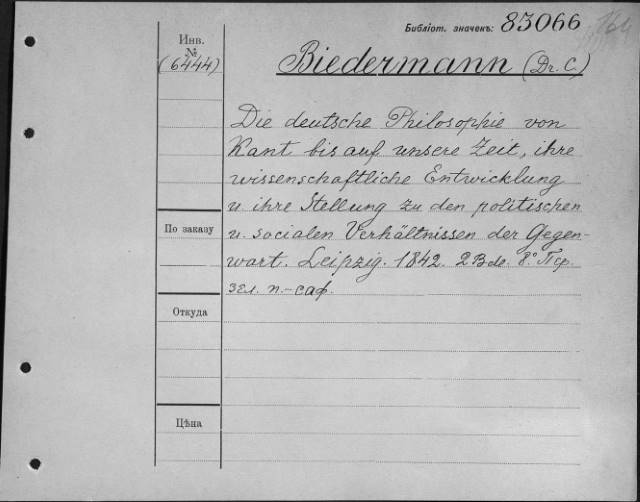 Библіот. значекъ: 83066
164
Инв.
№
(6444)
Biedermann (Dr. C.)
Die deutsche Philosophie von
Kant bis auf unsere Zeit, ihre
wissenschaftliche Entwicklung
u ihre Stellung zu den politischen
u. socialen Verhältnissen der Gegen-
wart. Leipzig. 1842. 2 Bde. 8° Пер.
зел. п.-саф.
По заказу
Откуда
Цѣна